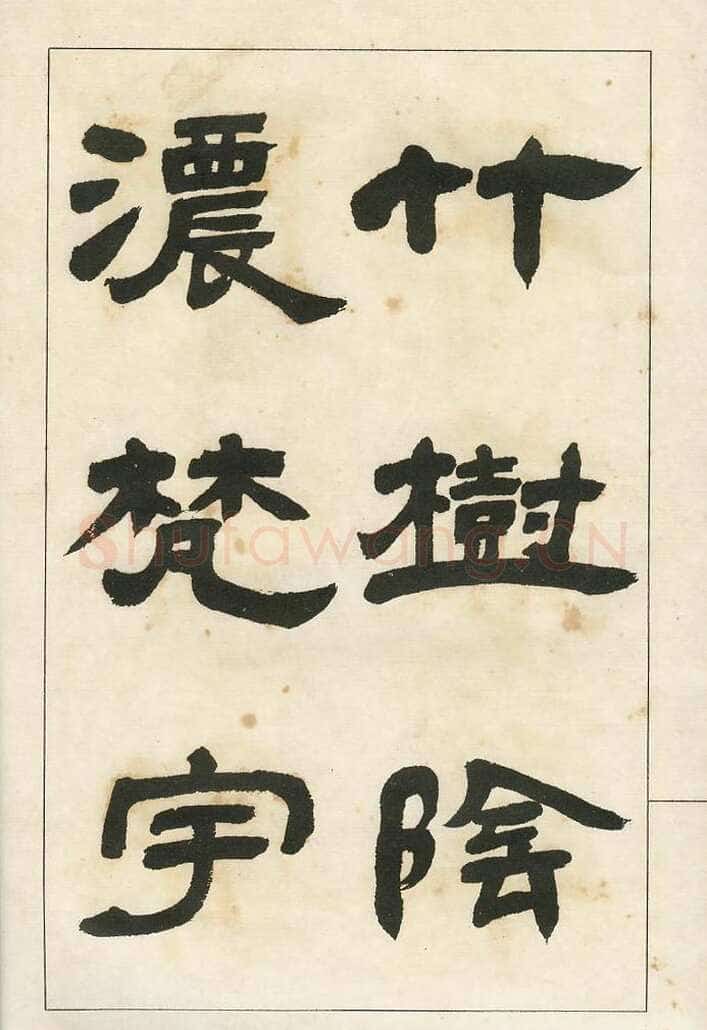 竹樹陰
濃梵宇
Shufawang.CN